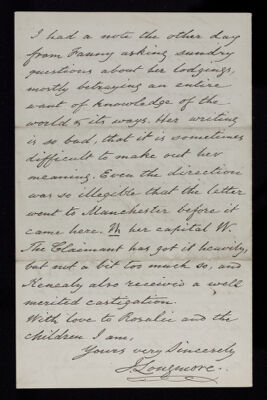 I had a note the other day
from Fanny asking sundry
questions about her lodgings,
mostly betraying an entire
want of knowledge of the
world & its ways. Her writing
is so bad, that it is sometimes
difficult to make out her
meaning. Even the direction
was so illegible that the letter
went to Manchester before it
came here. her capital W.
The Claimant has got it heavily,
but not a bit too much so, and
Kenealy also received a well
merited castigation.
With love to Rosalie and the
children I am,
Yours very Sincerely
J. Longmore.